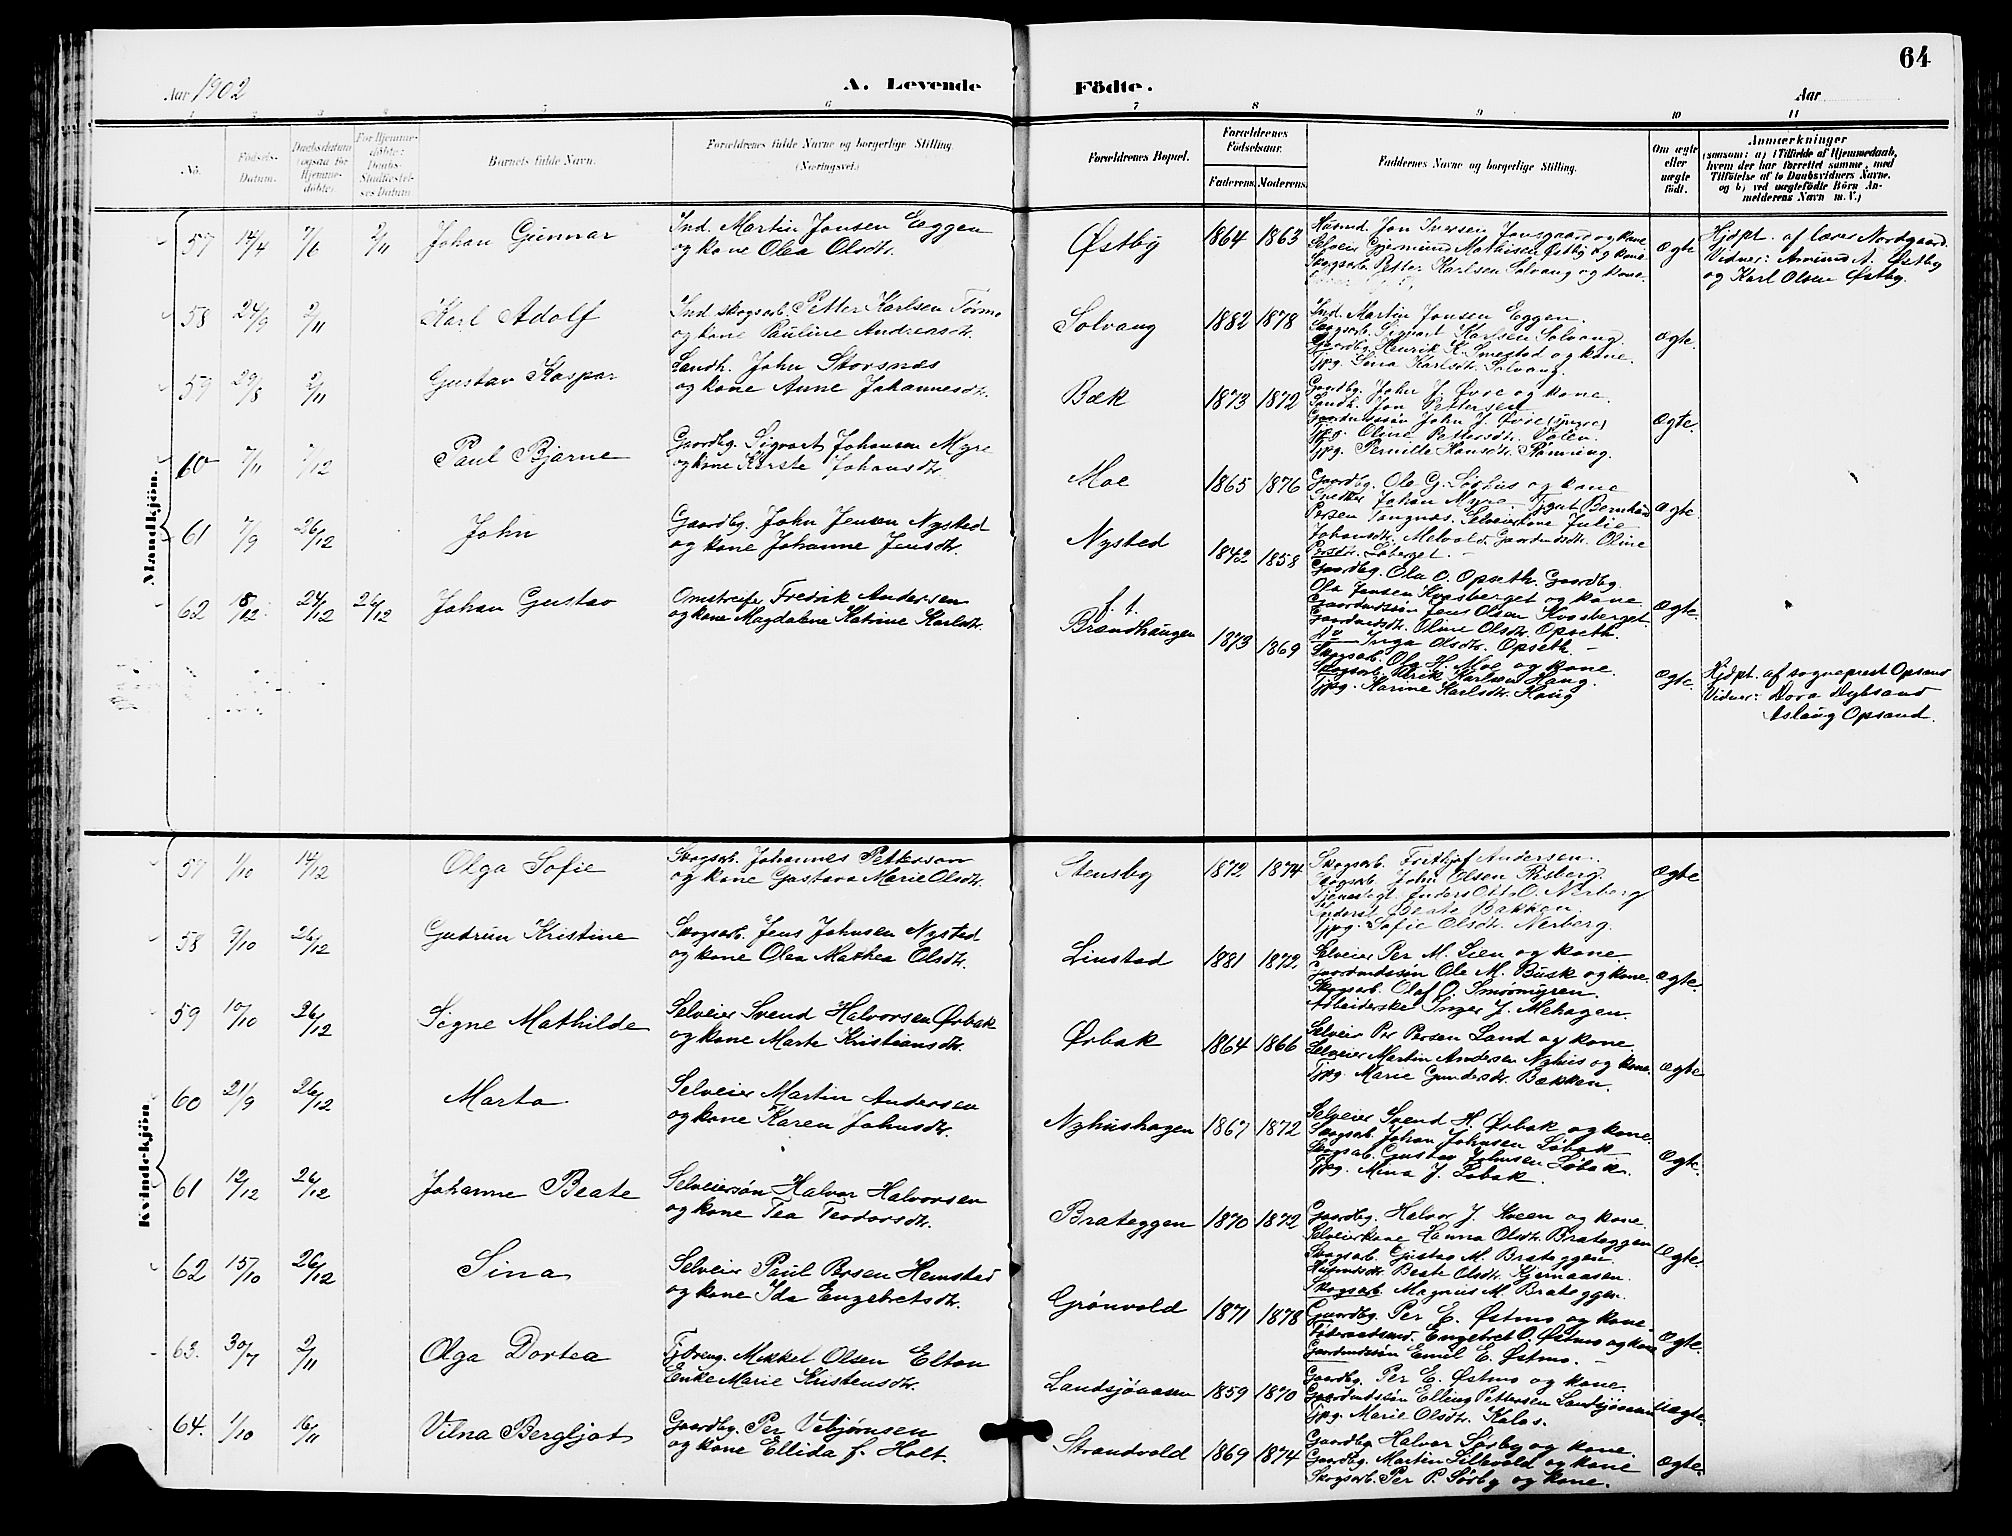 64
Aar 1902
A. Levende Födte.
Aar
1 2 3 4 5 6 7 8 9 10 11
No.
Fødsels-Datum.
Daabsdatum (ogsaa for Hjemmedøbte)
For Hjemmedøbte: Daabs-Stadfæstelses Datum
Barnets fulde Navn.
Forældrenes fulde Navne og borgerlige Stilling.
(Næringsvei.)
Forældrenes Bopæl.
Forældrenes Fødselsaar.
Faderens. Moderens.
Faddernes Navne og borgerlige Stilling.
Om ægte eller uægte født.
Anmærkninger
(saasom: a) i Tilfælde af Hjemmedaab, hvem der har forrettet samme, med Tilføielse af to Daabsvidners Navne, og b) ved uægtefødte Börn Anmelderens Navn m. V.)
Mandkjön.
57 14/4 7/6 2/11 Johan Gunnar
Ind. Martin Jonsen Eggen
og kone Olea Olsdtr.
Østby 1864 1863
Husmd. Jon Iversen Jonsgaard og kone.
Selveier Gjermund Mathisen Østby og kone
Skogsarb. Petter Karlsen Solvang og kone.
Ægte
Hjdpt. af lærer Nordgaard.
Vidner: Amund A. Østby
og Karl Olsen Østby.
58 24/9 2/11 Karl Adolf
Ind. skogsarb. Petter Karlsen Tørmo
og kone Pauline Andreasdtr.
Solvang 1882 1878
Ind. Martin Jonsen Eggen.
Skogsarb. Sigvart Karlsen Solvang.
Gaardbg. Henrik K. Smestad og kone.
Tjpg. Lena Karlsdtr. Solvang.
Ægte.
59 29/8 2/11 Gustav Kaspar
Landh. John Storsnæs
og kone Anne Johannesdtr.
Bæk 1873 1872
Gaardbg. John J. Øvre og kone.
Landh. Jon Pettersen
Gaardmdssøn John J. Øvre (yngre)
Tjpg. Oline Pettersdtr. Volen.
Tjpg. Pernille Hansdtr. Rønning.
Ægte.
60 7/11 7/12 Paul Bjarne
Gaardbg. Sigvart Johansen Myre
og kone Karste Johansdtr.
Moe 1865 1876
Gaardbg. Ole G. Løshus og kone
Snedker Johan Myre. Tjgut Bernhard
Persen Tangnæs. Selveierkone Julie
Johansdtr. Melvold. Gaardmdsdtr. Oline
Persdtr. Løberget. –
Ægte
61 7/9 26/12 John
Gaardbg. John Jensen Nysted
og kone Johanne Jensdtr.
Nysted 1842 1858
Gaardbg. Ola O. Opseth. Gaardbg.
Ola Jensen Kvasberget og kone
Gaardmdssøn Jens Olsen Kvasberget.
Gaardmdsdtr. Oline Olsdtr. Opseth.
Do Inga Olsdtr. Opseth. –
Ægte.
62 18/12 24/12 26/12 Johan Gustav
Omstreifer Fredrik Andersen
og kone Magdalene Katrine Karlsdtr.
f. t.
Brændhaugen 1873 1869
Skogsarb. Ola H. Moe og kone.
Skogsarb. Erik Karlsen Haug.
Tjpg. Karine Karlsdtr. Haug
Ægte.
Hjdpt. af sogneprest Opsand
Vidner: Dora Dybsand
Aslaug Opsand.
Kvindekjön.
57 1/10 14/12 Olga Sofie
Skogsarb. Johannes Petterson
og kone Gustava Marie Olsdtr.
Stensby 1872 1874
Skogsarb. Frithjof Andersen.
Skogsarb. John Olsen Risberg.
Tjenestegt. Anders Otto O. Nerberg
Inderst Beate Bakken.
Tjpg. Sofie Olsdtr. Nerberg.
Ægte
58 9/10 26/12 Gudrun Kristine
Skogsarb. Jens Johnsen Nysted
og kone Olea Mathea Olsdtr.
Linstad 1881 1872
Selveier Per M. Lien og kone
Gaardmdssøn Ole M. Busk og kone.
Skogsarb. Olaf O. Smørmyren.
Arbeiderske Inger J. Mehagen.
Ægte.
59 10/10 26/12 Signe Mathilde
Selveier Svend Halvorsen Ørbak
og kone Marte Kristiansdtr.
Ørbak 1864 1866
Selveier Per Persen Land og kone
Selveier Martin Andersen Nyhus og kone.
Tjpg. Marie Gundersdtr. Bækken.
Ægte
60 21/9 26/12 Marta
Selveier Martin Andersen
og kone Karen Johnsdtr.
Nyhushagen 1867 1872
Selveier Svend H. Ørbak og kone.
Skogsarb. Johan Johnsen Løbak
Skogsarb. Gustav Johnsen Løbak.
Tjpg. Mina J. Løbak.
Ægte.
61 12/12 26/12 Johanne Beate
Selveiersøn Halvor Halvorsen
og kone Tea Teodorsdtr.
Brateggen 1870 1872
Gaardbg. Halvor J. Kveen og kone
Selveierkone Hanna Olsdtr. Brateggen
Skogsarb. Gustav M. Brateggen
Husmdsdtr. Beate Olsdtr. Kjernaasen.
Skogsarb. Magnus M. Brateggen.
Ægte.
62 15/10 26/12 Sina
Selveier Paul Persen Hemstad
og kone Ida Engebretsdtr.
Grønvold 1871 1878
Gaardbg. Per E. Østmo og kone
Føderaadsmd. Engebret O. Østmo og kone
Gaardmdssøn Emil E. Østmo. –
Ægte.
63. 30/7 2/11 Olga Dortea
Tjdreng. Mikkel Olsen Elton
Enke Marie Kristensdtr.
Landsjøaasen 1859 1870
Gaardbg. Per E. Østmo og kone.
Gaardmdssøn Elling Pettersen Landsjøaasen
Tjpg. Marie Olsdtr. Kalas.
Uægte.
64. 1/10 16/11 Vilna Bergljot
Gaardbg. Per Vebjørnsen
og kone Ellida f. Holt.
Strandvold 1869 1874
Gaardbg. Halvor Sørby og kone.
Gaardbg. Martin Lillevold og kone
Skogsarb. Per P. Sørby og kone.
Ægte.